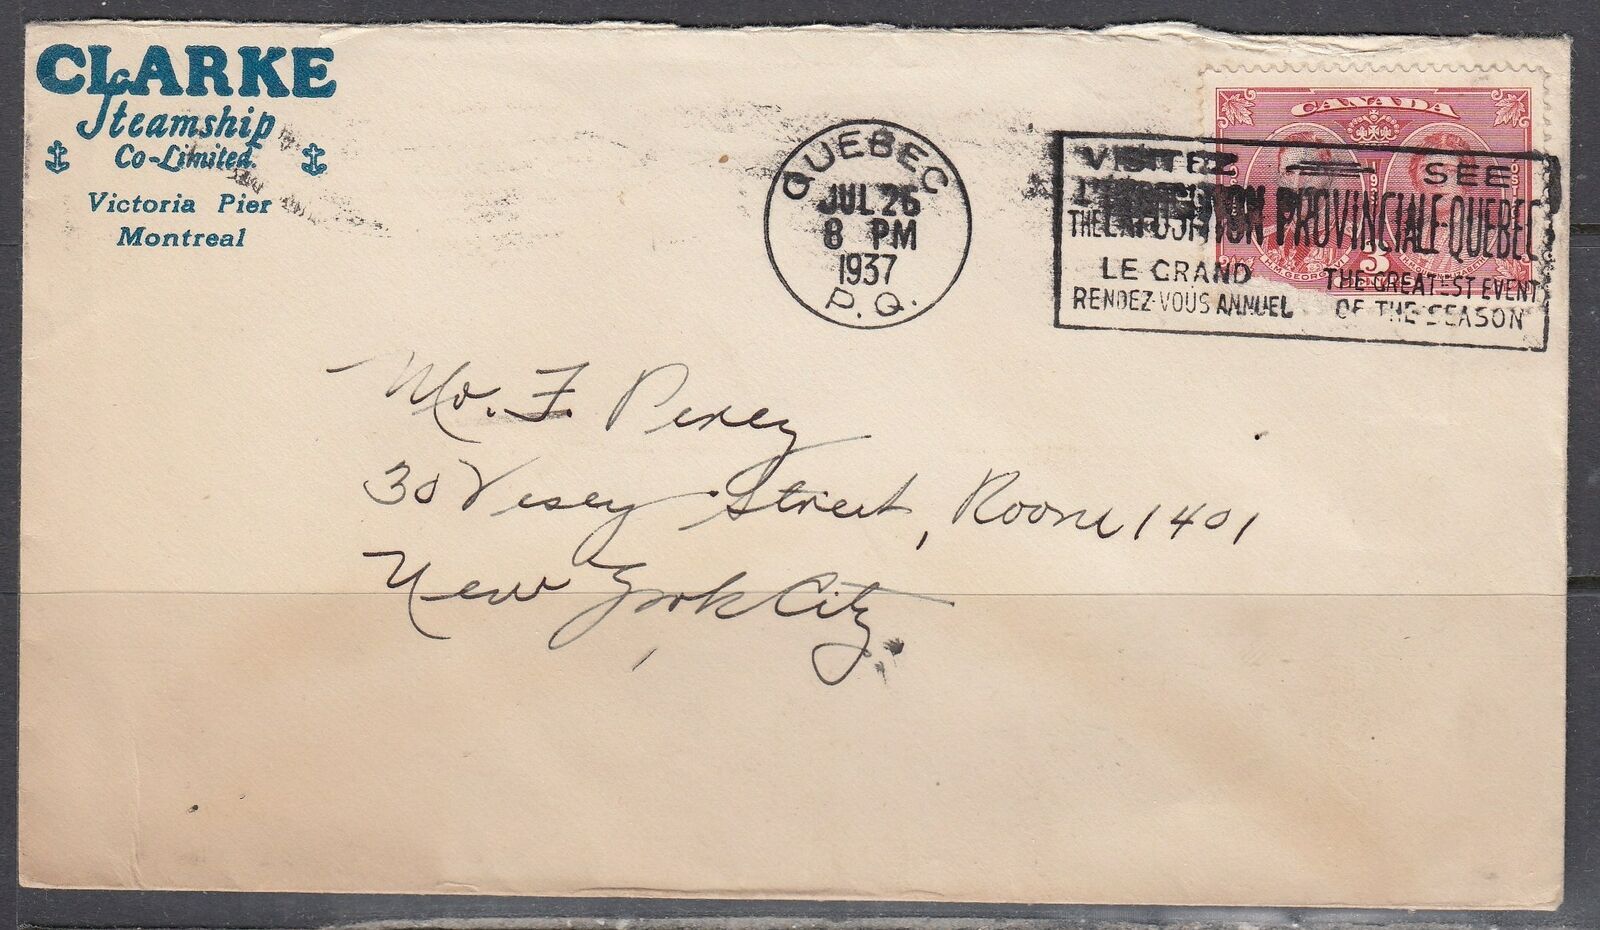 CLARKE
Steamship
Co-Limited.
Victoria Pier
Montreal
QUEBEC
JUL 26
8 PM
1937
P.Q.
CANADA
VISITEZ SEE
THE EXPOSITION PROVINCIALE-QUEBEC
LE GRAND THE GREATEST EVENT
RENDEZ-VOUS ANNUEL OF THE SEASON
3
Mr. F. Percy
30 Vesey Street, Room 1401
New York City.